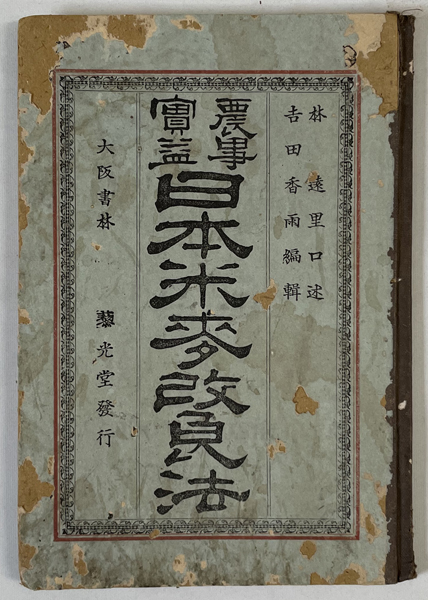 林 遠里口述
吉田香雨編輯
農事
實益
日本米麥改良法
大阪書林 藜光堂發行